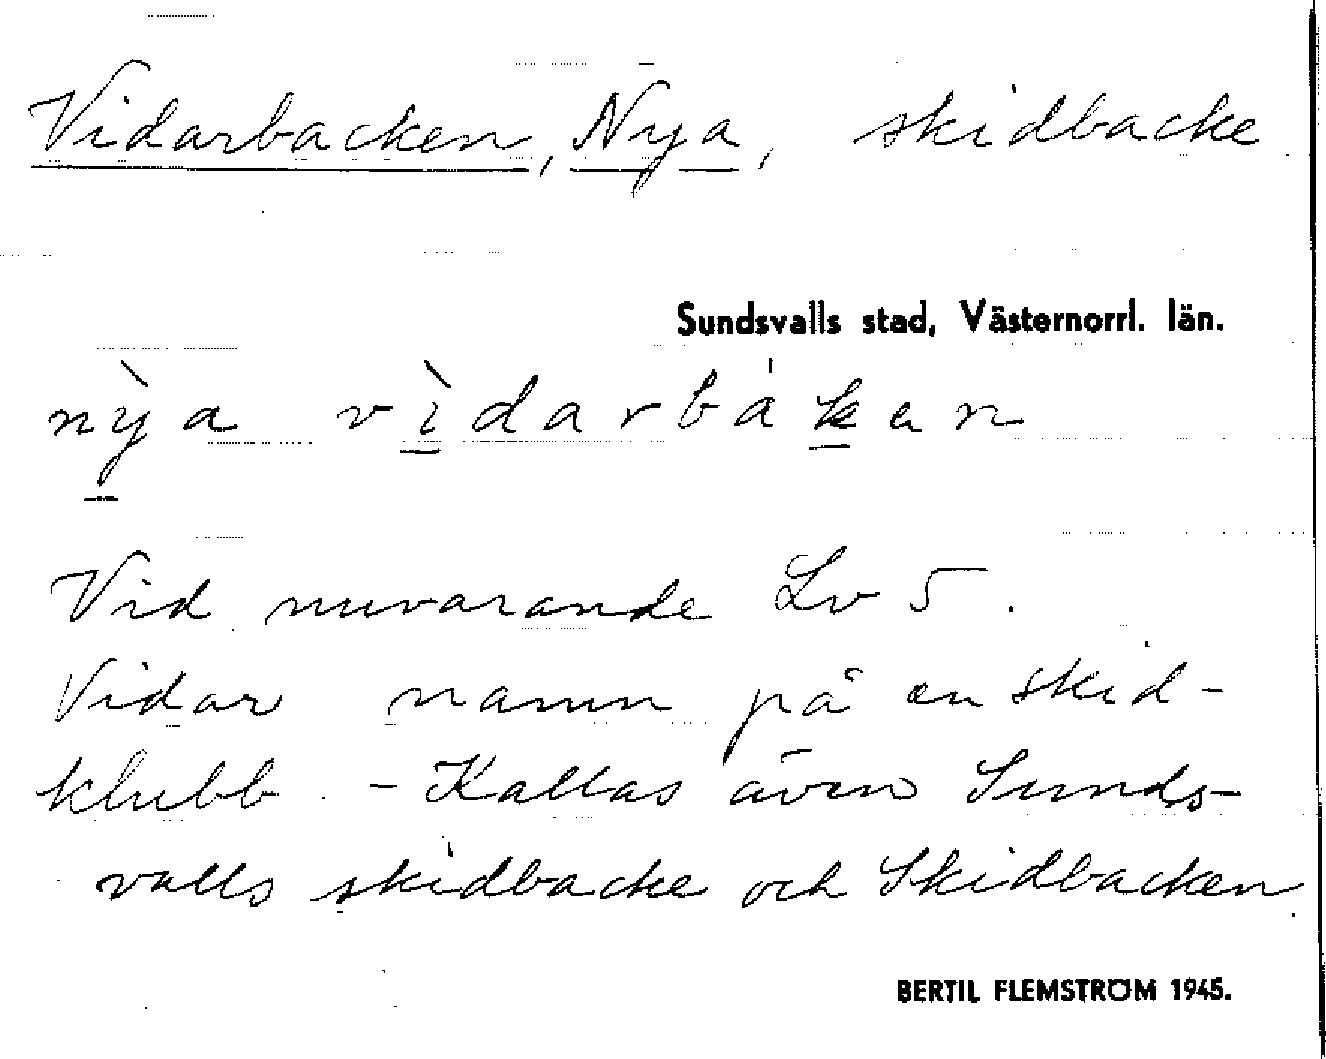 Vidarbacken, Nya, skidbacke
Sundsvalls stad, Västernorrl. län.
nỳa vìdarbákan
Vid nuvarande Lv 5.
Vidar namn på en skid-
klubb. - Kallas även Sunds-
valls skidbacke och Skidbacken.
BERTIL FLEMSTRÖM 1945.